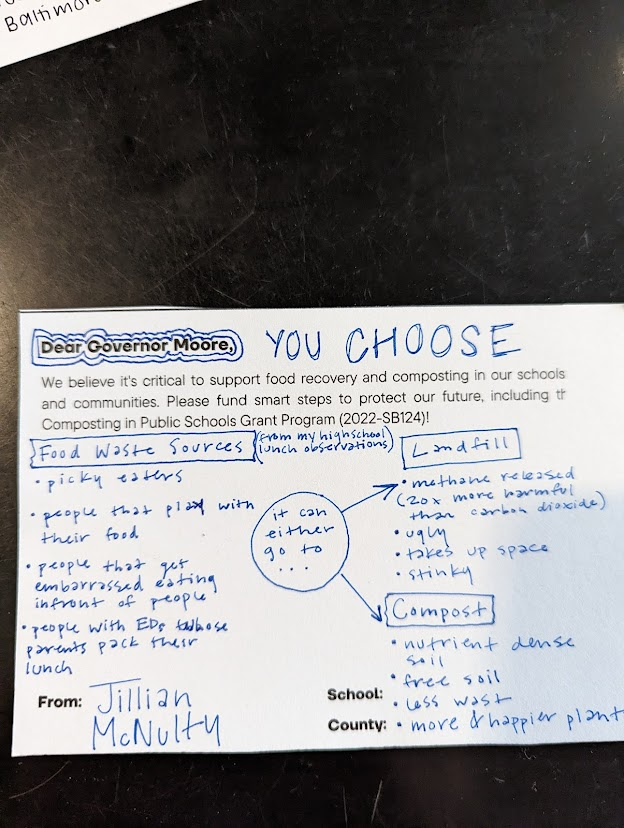 Baltimore
Dear Governor Moore, YOU CHOOSE
We believe it's critical to support food recovery and composting in our schools
and communities. Please fund smart steps to protect our future, including th
Composting in Public Schools Grant Program (2022-SB124)!
Food Waste Sources (from my highschool
lunch observations)
• picky eaters
• people that play with
their food
• people that get
embarrassed eating
infront of people
• people with EDs whose
parents pack their
lunch
it can
either
go to
...
Landfill
• methane released
(20x more harmful
than carbon dioxide)
• ugly
• takes up space
• stinky
Compost
• nutrient dense
soil
• free soil
• less wast
• more & happier plant
From: Jillian
McNulty
School:
County: